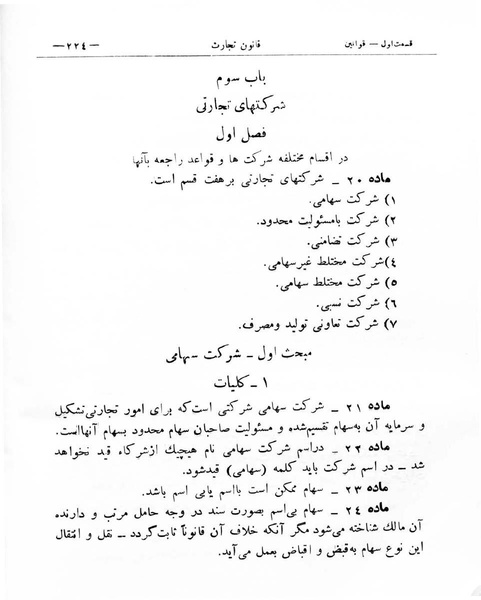 قسمت اول — قوانین
قانون تجارت
—۲۲۴—
باب سوم
شرکتهای تجارتی
فصل اول
در اقسام مختلفه شرکت ها و قواعد راجعه بآنها
ماده ۲۰ ـ شرکتهای تجارتی برهفت قسم است.
۱) شرکت سهامی.
۲) شرکت بامسئولیت محدود.
۳) شرکت تضامنی.
۴)شرکت مختلط غیرسهامی.
۵) شرکت مختلط سهامی.
۶) شرکت نسبی.
۷) شرکت تعاونی تولید ومصرف.
مبحث اول ـ شرکت سهامی
۱ ـ کلیات
ماده ۲۱ ـ شرکت سهامی شرکتی است‌که برای امور تجارتی‌تشکیل
و سرمایه آن به‌سهام تقسیم‌شده و مسئولیت صاحبان سهام محدود بسهام آنهااست.
ماده ۲۲ ـ دراسم شرکت سهامی نام هیچیک ازشرکاء قید نخواهد
شد ـ در اسم شرکت باید کلمه (سهامی) قیدشود.
ماده ۲۳ ـ سهام ممکن است بااسم یابی اسم باشد.
ماده ۲۴ ـ سهام بی‌اسم بصورت سند در وجه حامل مرتب و دارنده
آن مالك شناخته می‌شود مگر آنکه خلاف آن قانوناً ثابت‌گردد ـ نقل و انتقال
این نوع سهام به‌قبض و اقباض بعمل می‌آید.